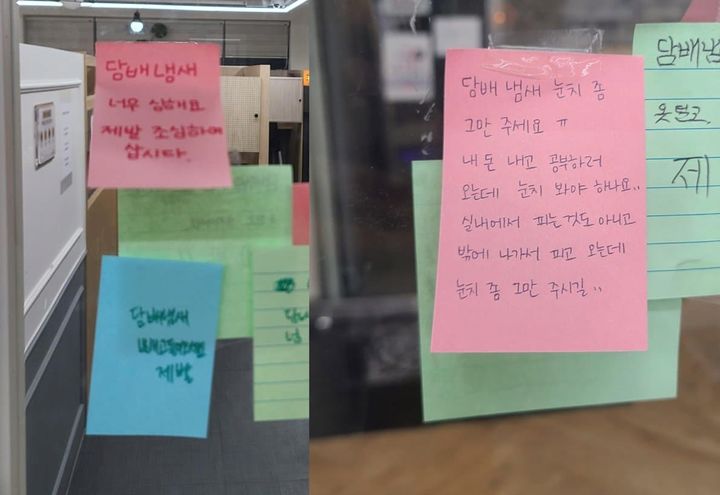 담배냄새
너우 심해요
제발 조심하며
삽시다.
담배냄새
제발
담배 냄새 눈치 좀
그만 주세요 ㅠ
내 돈 내고 공부하러
오는데 눈치 봐야 하나요..
실내에서 피는것도 아니고
밖에 나가서 피고 오는데
눈치 좀 그만 주시길..
담배냄
옷 털고
제